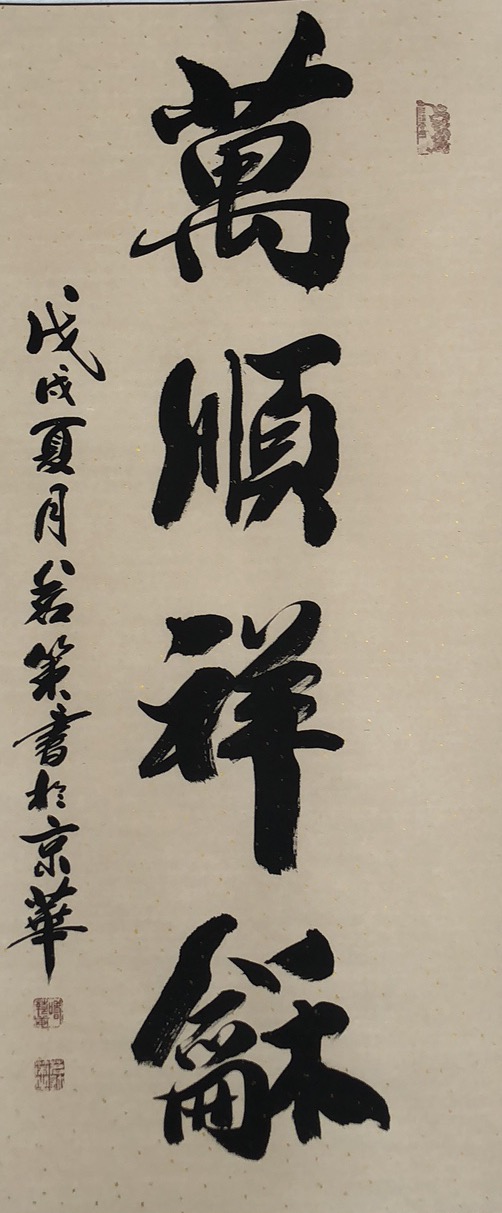 萬順祥龢
戊戌夏月茗策書於京華